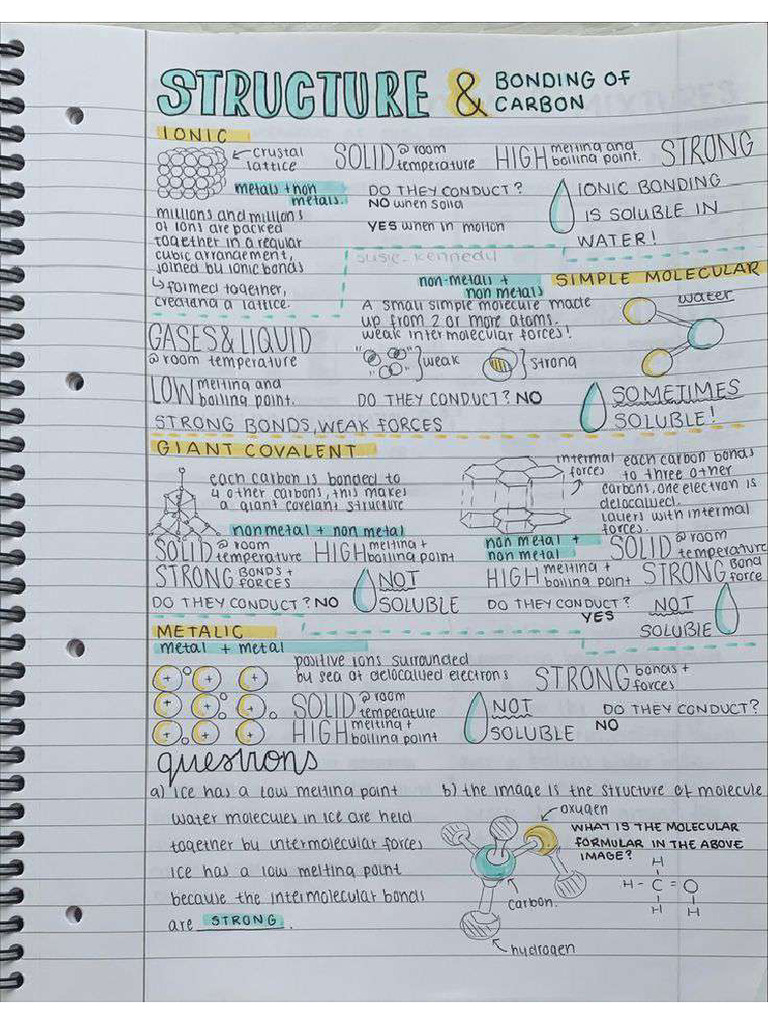 STRUCTURE & BONDING OF CARBON
IONIC
crustal lattice
SOLID @ room temperature
HIGH melting and boiling point.
STRONG
metals + non metals.
DO THEY CONDUCT?
NO when solid
YES when in molton
IONIC BONDING
IS SOLUBLE IN
WATER!
millions and millions
of ions are packed
together in a regular
cubic arrangement,
joined by ionic bonds
↳ formed together,
creating a lattice.
susie kennedy
SIMPLE MOLECULAR
non-metals +
non metals
A small simple molecule made
up from 2 or more atoms.
weak intermolecular forces!
water
GASES & LIQUID
@ room temperature
weak
strong
LOW melting and boiling point.
DO THEY CONDUCT? NO
SOMETIMES
SOLUBLE!
STRONG BONDS, WEAK FORCES
GIANT COVALENT
each carbon is bonded to
4 other carbons, this makes
a giant covelant structure
nonmetal + non metal
SOLID @ room temperature
HIGH melting + boiling point
STRONG BONDS + FORCES
NOT
SOLUBLE
DO THEY CONDUCT? NO
internal forces
each carbon bonds
to three other
carbons, one electron is
delocalised.
layers with internal
forces.
non metal +
non metal
SOLID @ room temperature
HIGH melting + boiling point
STRONG bond force
DO THEY CONDUCT?
YES
NOT
SOLUBLE
METALIC
metal + metal
positive ions surrounded
by sea of delocalised electrons
STRONG bonds + forces
+ + +
+ + +
+ + +
SOLID @ room temperature
HIGH melting + boiling point
NOT
SOLUBLE
DO THEY CONDUCT?
NO
questions
a) ice has a low melting point
water molecules in ice are held
together by intermolecular forces
ice has a low melting point
because the intermolecular bonds
are STRONG.
b) the image is the structure of molecule
oxygen
carbon.
hydrogen
WHAT IS THE MOLECULAR
FORMULAR IN THE ABOVE
IMAGE?
H
H - C = O
H H